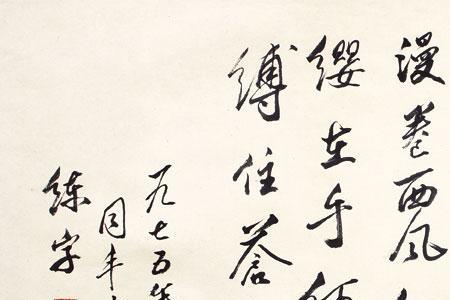 漫卷西风
缨在手
缚住蒼
一九七五
同丰
练字